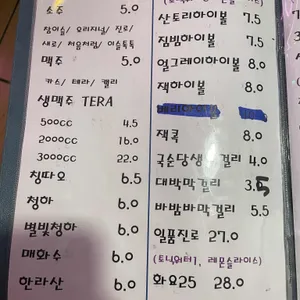 소주 5.0
참이슬/ 오리지널/ 진로/
새로/ 처음처럼/ 이슬톡톡
맥주 5.0
카스/ 테라/ 켈리
생맥주 TERA
500cc 4.5
2000cc 16.0
3000cc 22.0
칭따오 6.5
청하 6.0
별빛청하 6.0
매화수 6.0
한라산 6.0
산토리하이볼 7.5
짐빔하이볼 7.5
얼그레이하이볼 8.0
잭하이볼 8.0
잭콕 8.0
국순당생막걸리 4.0
대박막걸리 3.5
바밤바막걸리 5.5
일품진로 27.0
(토닉워터1, 레몬슬라이스)
화요25 28.0